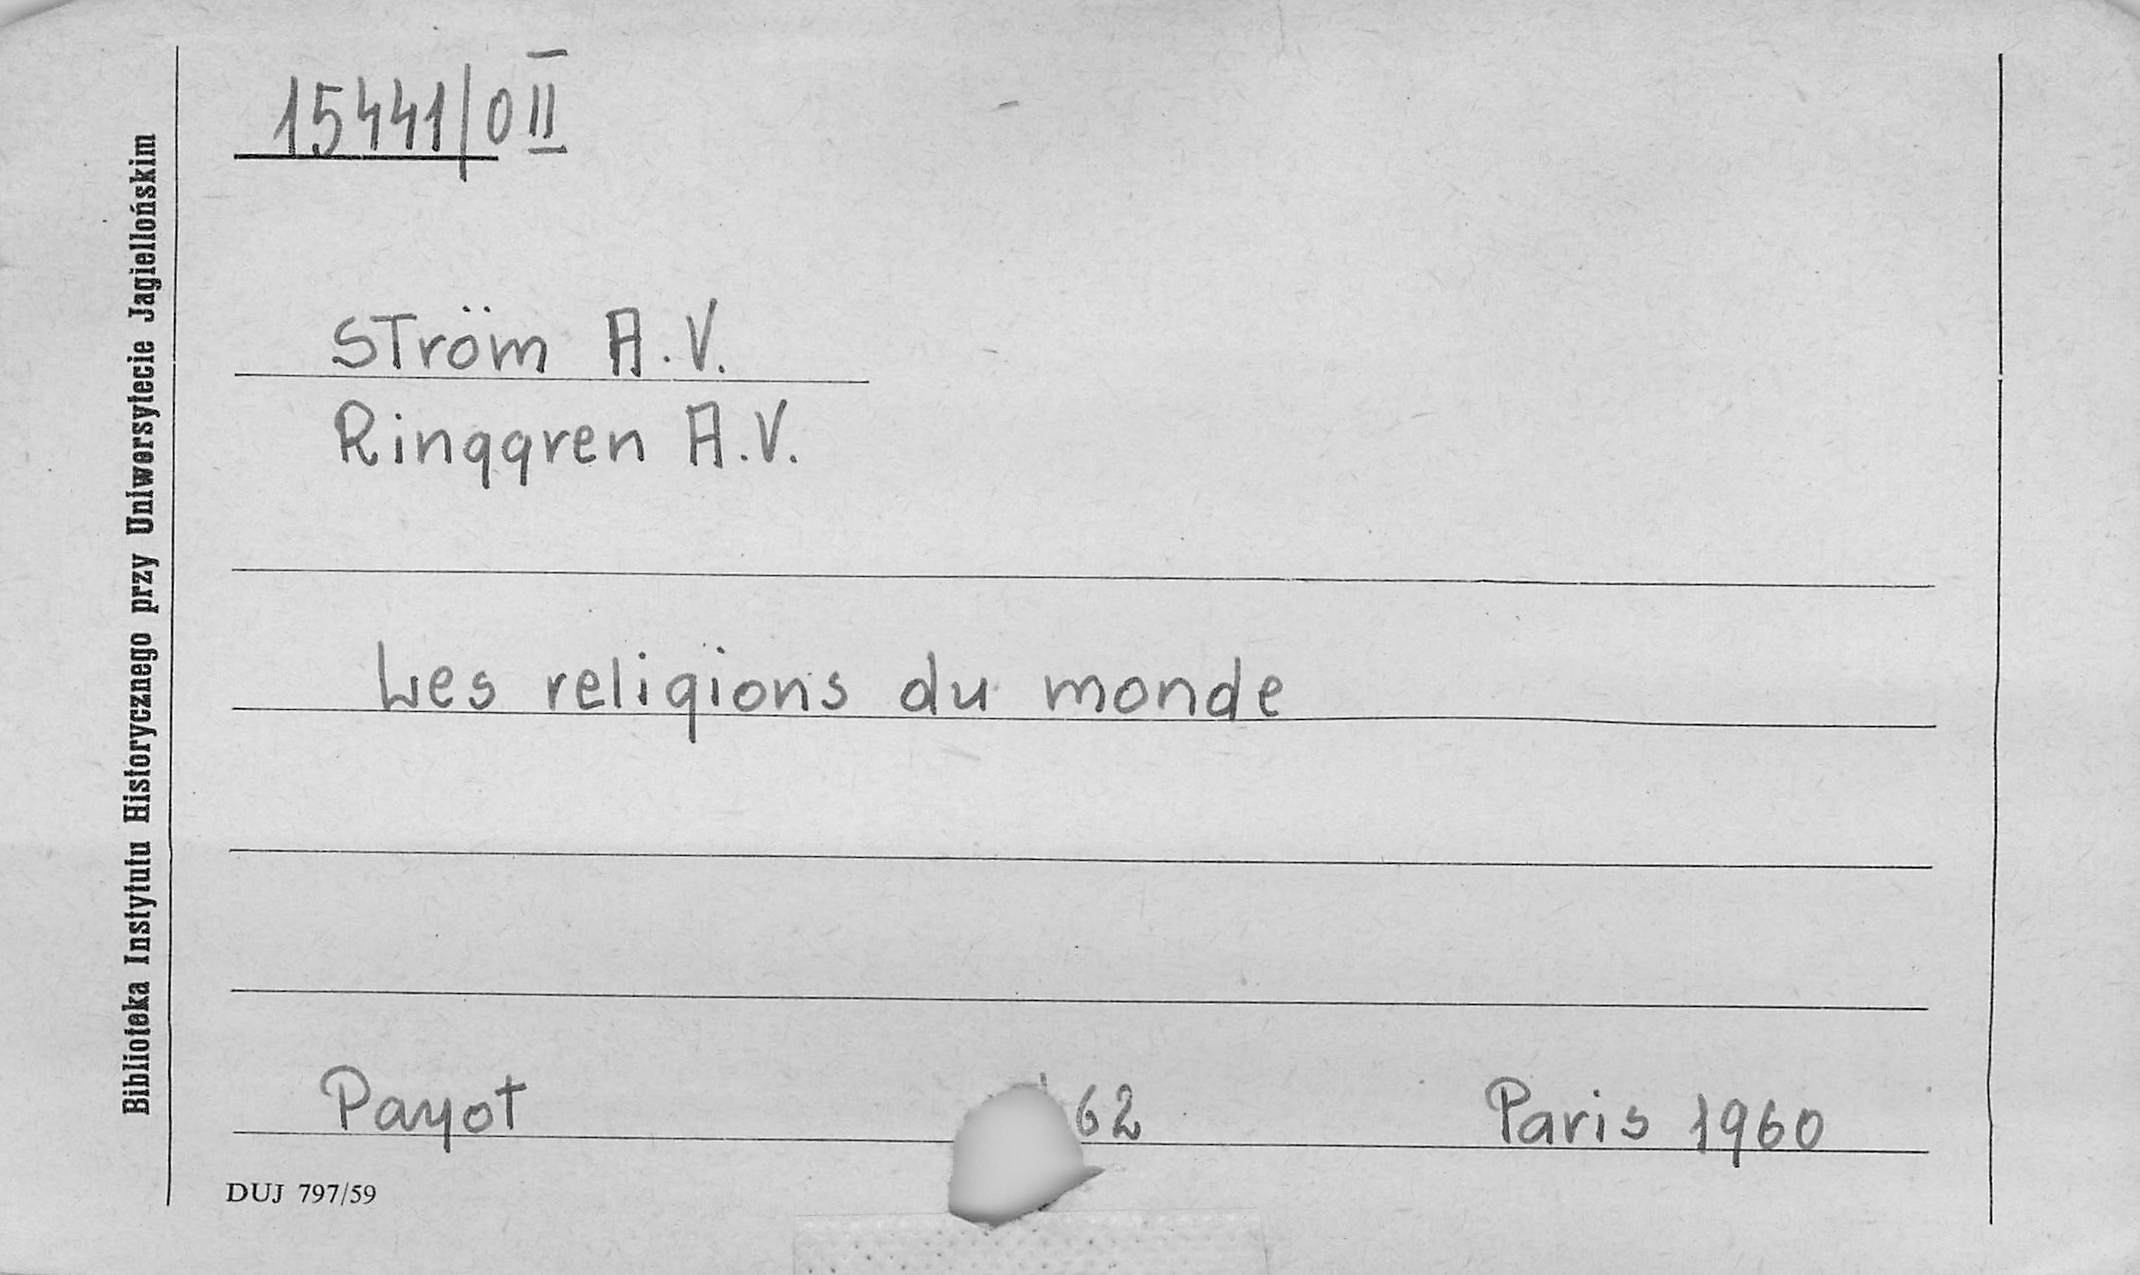 15441/0 II
Biblioteka Instytutu Historycznego przy Uniwersytecie Jagiellońskim
Ström A.V.
Ringgren A.V.
Les religions du monde
Payot 62 Paris 1960
DUJ 797/59